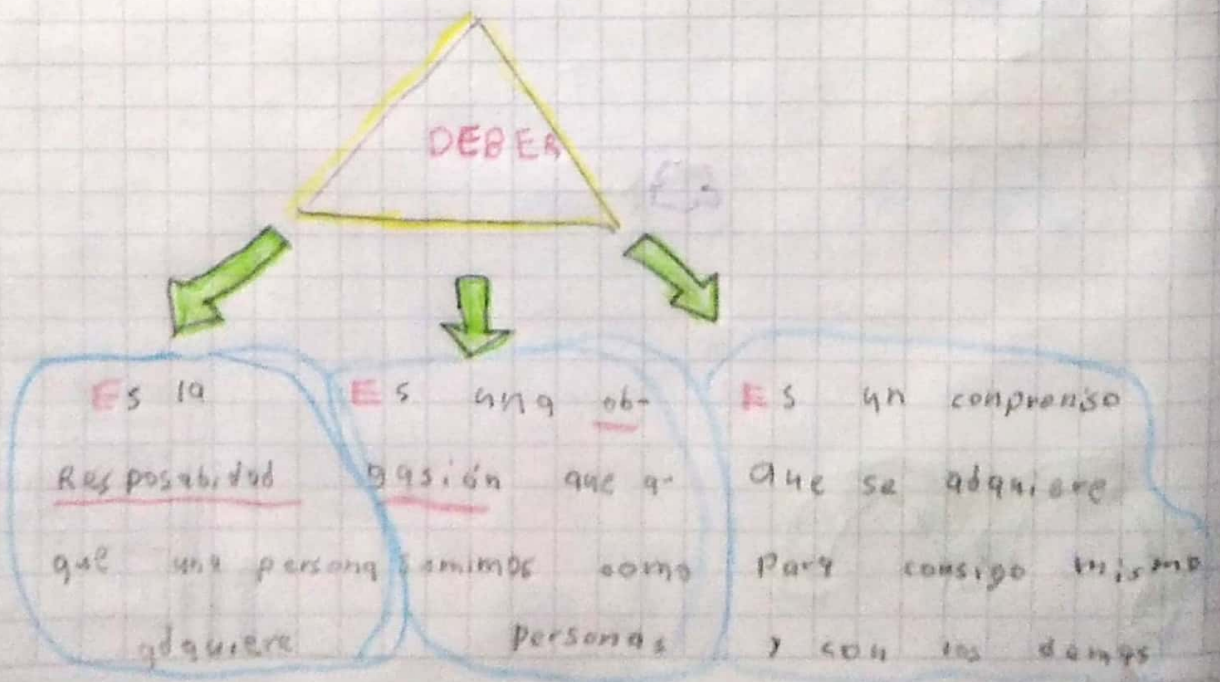 DEBER
Es la
Resposabidad
que una persona
adquiere
Es una ob-
gasión que a-
somimos somo
personas
Es un conpromiso
que se adquiere
para consigo mismo
y con los demas